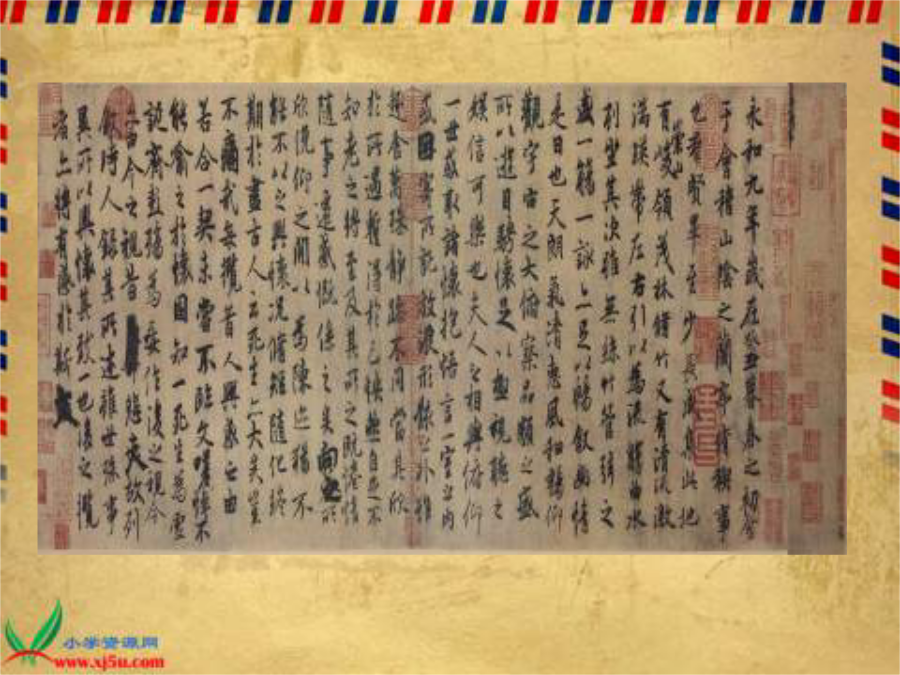 永和九年歲在癸丑暮春之初會
于會稽山陰之蘭亭脩稧事
也群賢畢至少長咸集此地
有崇山峻領茂林脩竹又有清流激
湍暎帶左右引以為流觴曲水
列坐其次雖無絲竹管弦之
盛一觴一詠亦足以暢敘幽情
是日也天朗氣清惠風和暢仰
觀宇宙之大俯察品類之盛
所以遊目騁懷足以極視聽之
娛信可樂也夫人之相與俯仰
一世或取諸懷抱悟言一室之內
或因寄所託放浪形骸之外雖
趣舍萬殊靜躁不同當其欣
於所遇蹔得於己怏然自足不
知老之將至及其所之既惓情
隨事遷感慨係之矣向之所
欣俛仰之閒以為陳迹猶不
能不以之興懷況脩短隨化終
期於盡古人云死生亦大矣豈
不痛哉每攬昔人興感之由
若合一契未嘗不臨文嗟悼不
能喻之於懷固知一死生為虛
誕齊彭殤為妄作後之視今
亦由今之視昔悲夫故列
敘時人錄其所述雖世殊事
異所以興懷其致一也後之攬
者亦將有感於斯文
小学资源网
www.xj5u.com